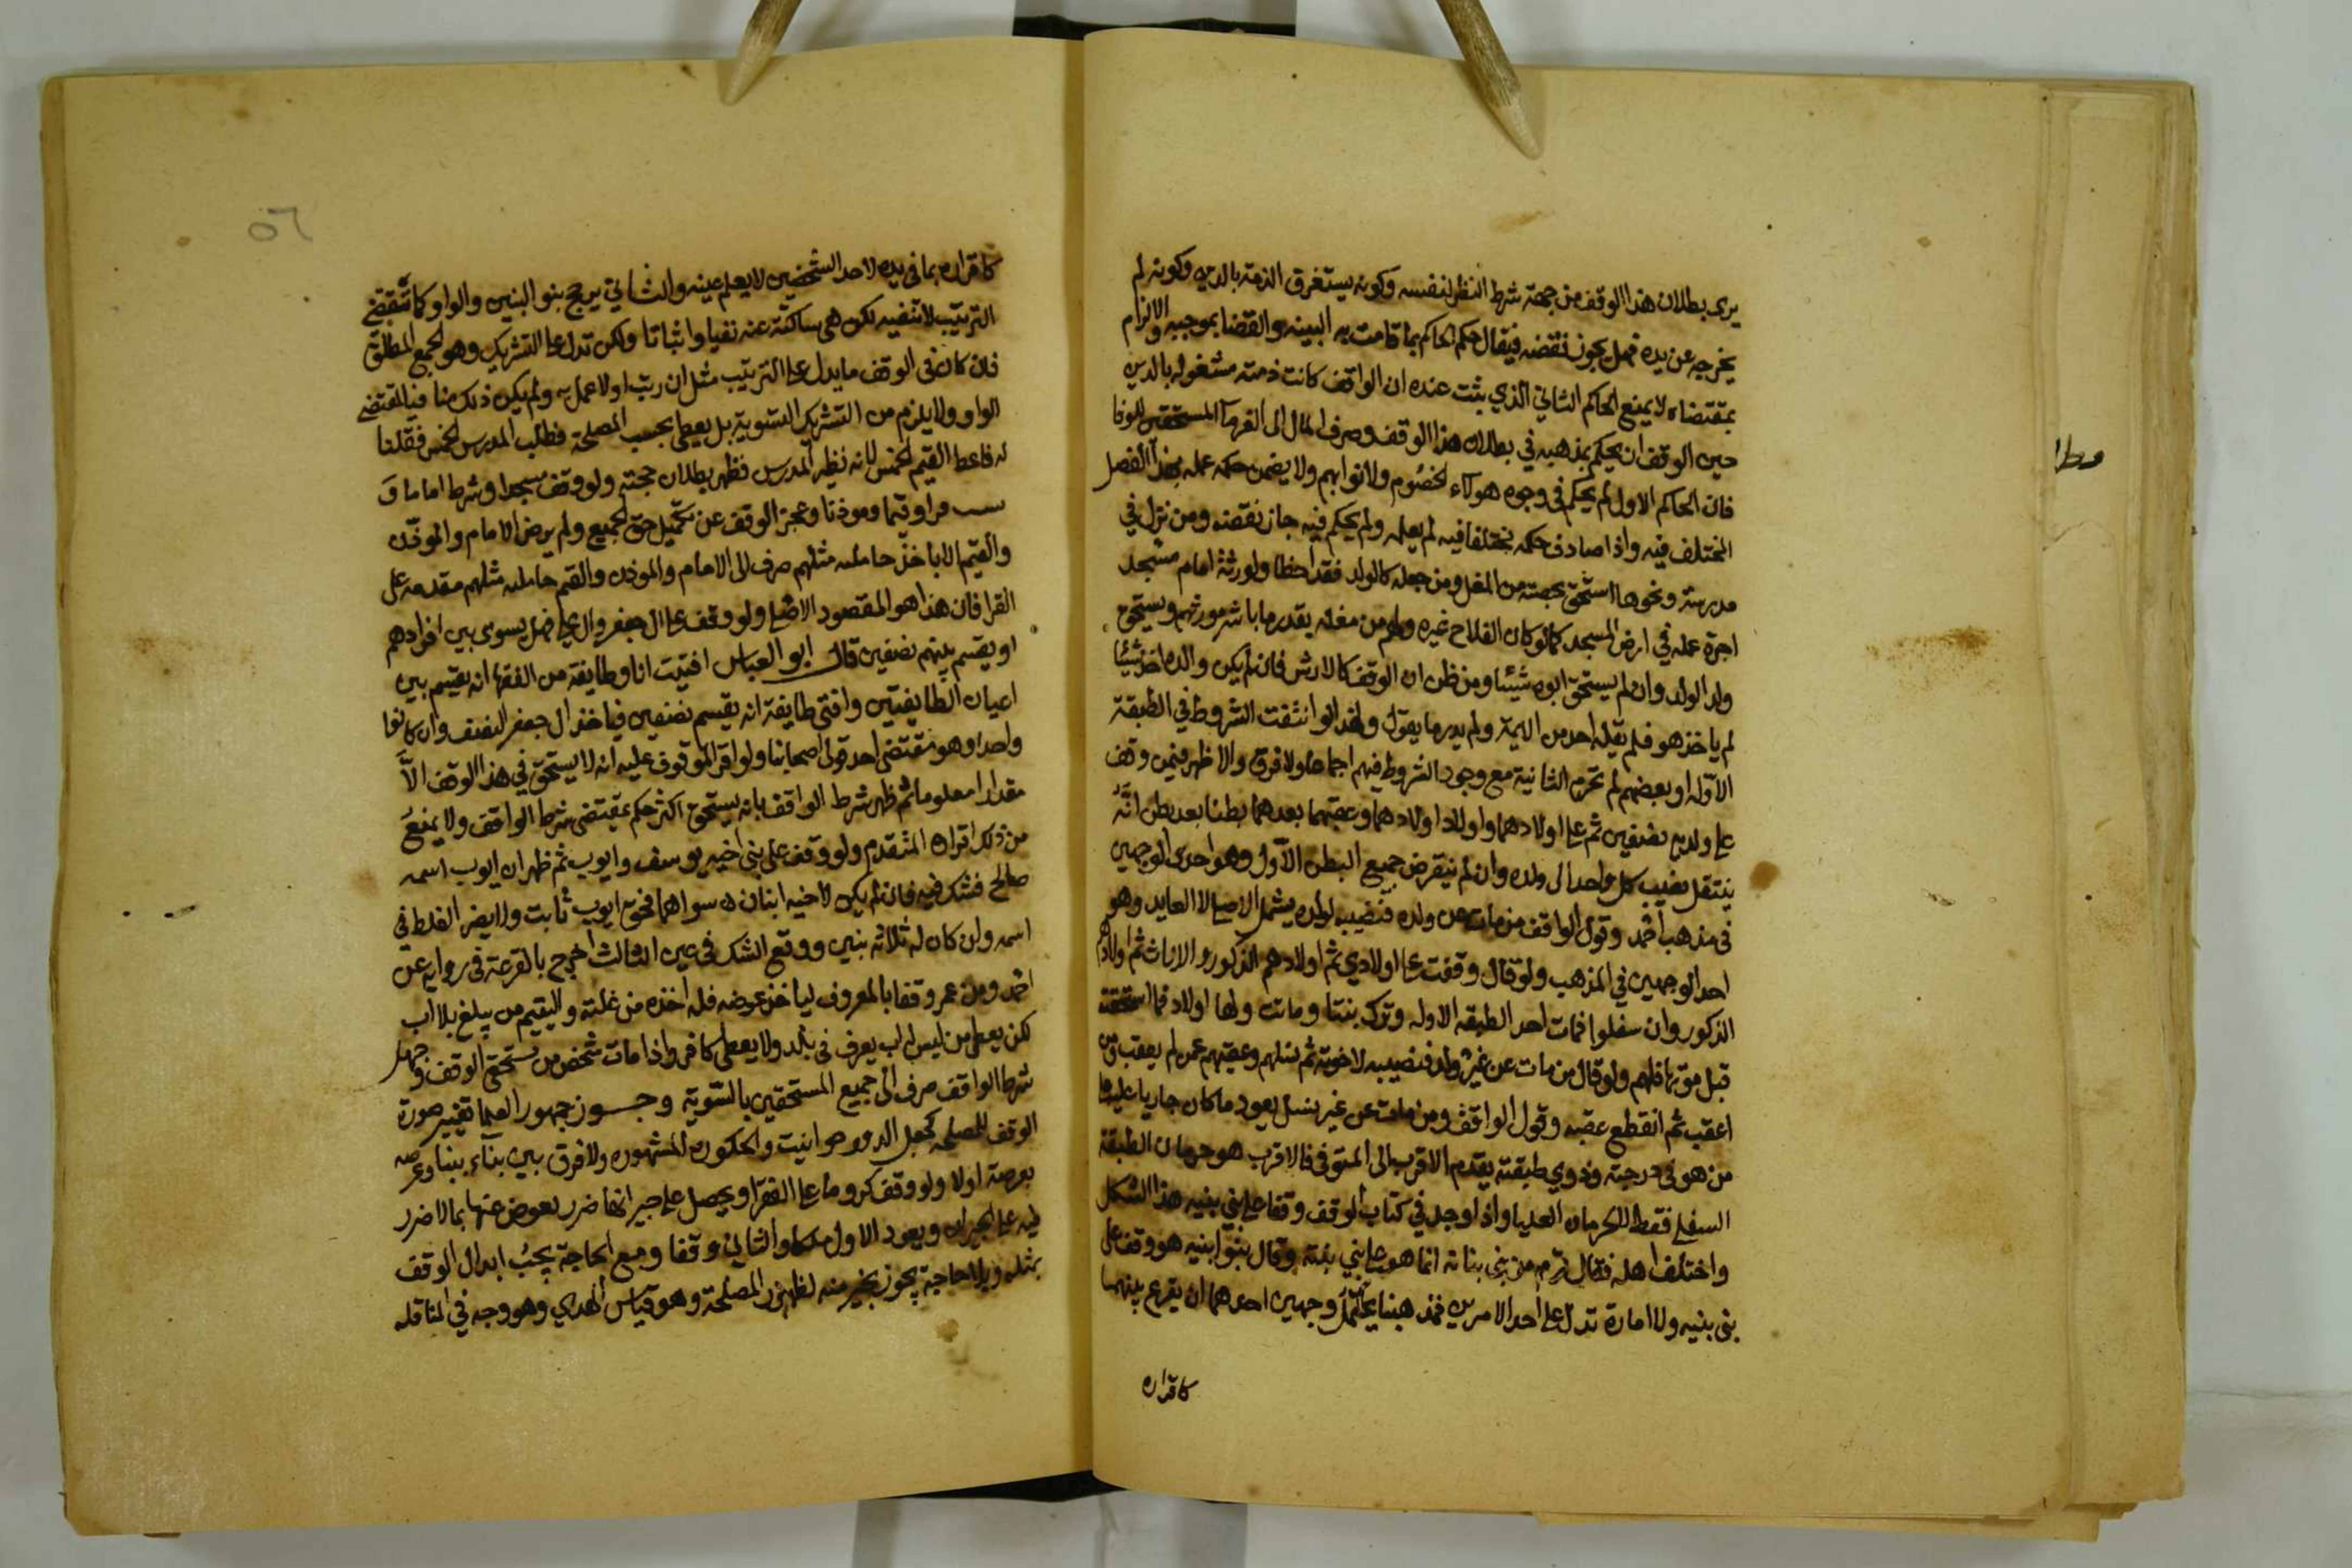 يرى بطلان هذا الوقف من جهة شرط النظر لنفسه وكونه يستغرق الذمة بالدين وكونه لم
يخرجه عن يده فهل يجوز نقضه فيقال حكم الحاكم بما قامت به البينه والقضا بموجبه والالزام
بمقتضاه لا يمنع الحاكم الثاني الذي يثبت عنده ان الواقف كانت ذمته مشغوله بالدين
حين الوقف ان يحكم بمذهبه في بطلان هذا الوقف وصرف المال الى الغرمآ المستحقين للوفا
فان الحاكم الاول لم يحكم في وجوه هولآء الخصوم ولا نوابهم ولا يضمن حكمه عمله بهذا الفصل
المختلف فيه واذا صادف حكمه مختلفا فيه لم يعلمه ولم يحكم فيه جاز نقضه ومن نزل في
مدرسة ونحوها استحق بحصته من المغل ومن جعله كالولد فقد اخطا ولورثة امام مسجد
اجرة عمله في ارض المسجد كما لو كان الفلاح غيره ولهم من مغله بقدر ما باشر مورثهم ويستحق
ولد الولد وان لم يستحق ابوه شيئا ومن ظن ان الوقف كالارث فان لم يكن والده اخذ شيئا
لم ياخذ هو فلم يقله احد من الايمة ولم يدر ما يقول ولهذا لو انتفت الشروط في الطبقة
الاوله او بعضهم لم تحرم الثانية مع وجود الشروط فيهم اجماعا ولا فرق والاظهر فيمن وقف
على ولديه نصفين ثم على اولادهما واولاد اولادهما وعقبهما بعدهما بطنا بعد بطن انه
ينتقل نصيب كل واحد الى ولده وان لم ينقرض جميع البطن الاول وهو احدى الوجهين
في مذهب احمد وقول الواقف من مات عن ولده فنصيبه لولده يشمل الاصيل لا العايد وهو
احد الوجهين في المذهب ولو قال وقفت على اولادي ثم اولادهم الذكور والاناث ثم اولادهم
الذكور وان سفلوا فمات احد الطبقه الاوله وترك بنتا وماتت ولها اولاد فما استحقته
قبل موتها فلهم ولو قال من مات عن غير ولد فنصيبه لاخوته ثم نسلهم وعقبهم عمن لم يعقب ومن
اعقب ثم انقطع عقبه وقول الواقف ومن مات عن غير نسل يعود ما كان جاريا عليه على
من هو في درجته وذوي طبقته يقدم الاقرب الى المتوفى فالاقرب هو حرمان الطبقة
السفلى فقط لا حرمان العليا واذا وجد في كتاب الوقف وقفا على بني بنيه هذا الشكل
واختلف اهله فقال قوم من بني بناته انما هو على بني بنته وقال بنو ابنيه هو وقف على
بني بنيه ولا امارة تدل على احد الامرين فمذهبنا يحتمل وجهين احدهما ان يقرع بينهما
كاقراره
وطا
٥٦
كاقراره بما في يده لاحد الشخصين لا يعلم عينه والثاني يرجح بنو البنين والواو كما تقتضي
الترتيب لا تنفيه لكن هي ساكتة عنه نفيا واثباتا ولكن تدل على التشريك وهو الجمع المطلق
فان كان في الوقف ما يدل على الترتيب مثل ان رتب اولا عمل به ولم يكن ذلك منافيا لمقتضى
الواو ولا يلزم من التشريك التسوية بل يعطى بحسب المصلحة فطلب المدرس الخمس فقلنا
له فاعط القيم الخمس لانه نظير المدرس فظهر بطلان حجته ولو وقف مسجدا وشرط اماما و
ستة قراوقيما وموذنا وعجز الوقف عن تكميل حق الجميع ولم يرض الامام والموذن
والقيم الا باخذ جامكيه مثلهم صرف الى الامام والموذن والقيم جامكيه مثلهم مقدمه على
القرا فان هذا هو المقصود الاصلي ولو وقف على ال جعفر وال علي فهل يسوى بين افرادهم
او يقسم بينهم نصفين قال ابو العباس افتيت انا وطايفة من الفقها انه يقسم بين
اعيان الطايفتين وافتى طايفة انه يقسم نصفين فياخذ ال جعفر النصف وان كانوا
واحدا وهو مقتضى احد قولي اصحابنا ولو اقر الموقوف عليه انه لا يستحق في هذا الوقف الا
مقدارا معلوما ثم ظهر شرط الواقف بانه يستحق اكثر حكم بمقتضى شرط الواقف ولا يمنع
من ذلك اقراره المتقدم ولو وقف على بني اخيه يوسف وايوب ثم ظهر ان ايوب اسمه
صالح فشك فيه فان لم يكن لاخيه ابنان سواهما فحق ايوب ثابت ولا يضر الغلط في
اسمه وان كان له ثلاثه بنين ووقع الشك في عين الثالث اخرج بالقرعة في رواية عن
احمد ومن عمر وقفا بالمعروف لياخذ عوضه فله اخذه من غلته واليتيم من يبلغ بلا اب
لكن يعطى من ليس له اب يعرف في بلد ولا يعطى كافر واذا مات شخص من مستحقي الوقف وجهل
شرط الواقف صرف الى جميع المستحقين بالسوية وجوز جمهور العلما تغيير صورة
الوقف للمصلحه كجعل الدور حوانيت والحكوره المشهوره ولا فرق بين بنآء ببنا وعرصه
بعرصة اولا ولو وقف كروما على الفقرا ويحصل على جيرانها ضرر يعوض عنها بما لا ضرر
فيه على الجيران ويعود الاول ملكا والثاني وقفا ومع الحاجة يجب ابدال الوقف
بمثله وبلا حاجة يجوز بخير منه لظهور المصلحة وهو قياس الهدي وهو وجه في المناقله